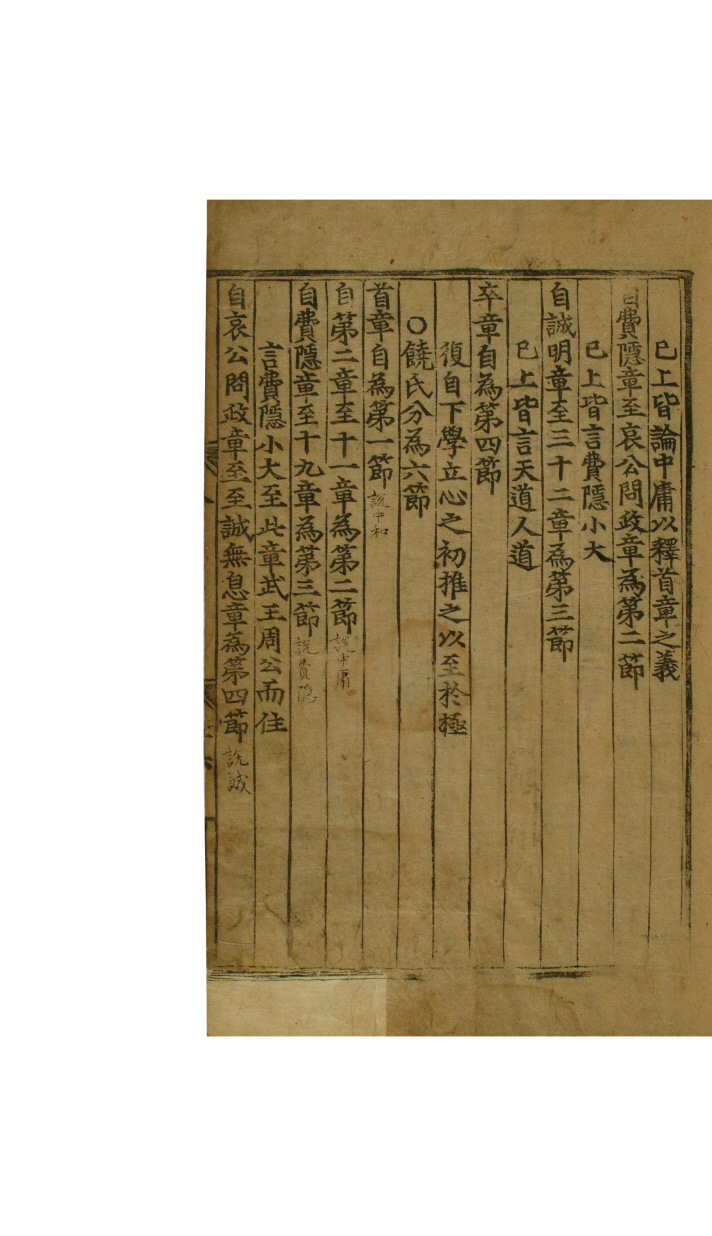 已上皆論中庸以釋首章之義
自費隱章至哀公問政章為第二節
已上皆言費隱小大
自誠明章至三十二章為第三節
已上皆言天道人道
卒章自為第四節
復自下學立心之初推之以至於極
○饒氏分為六節
首章自為第一節 說中和
自第二章至十一章為第二節 說中庸
自費隱章至十九章為第三節 說費隱
言費隱小大至此章武王周公而住
自哀公問政章至至誠無息章為第四節 說誠